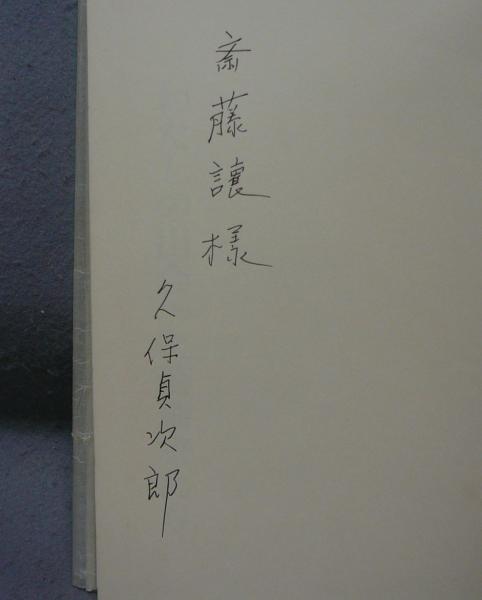 斎藤讓様
久保貞次郎